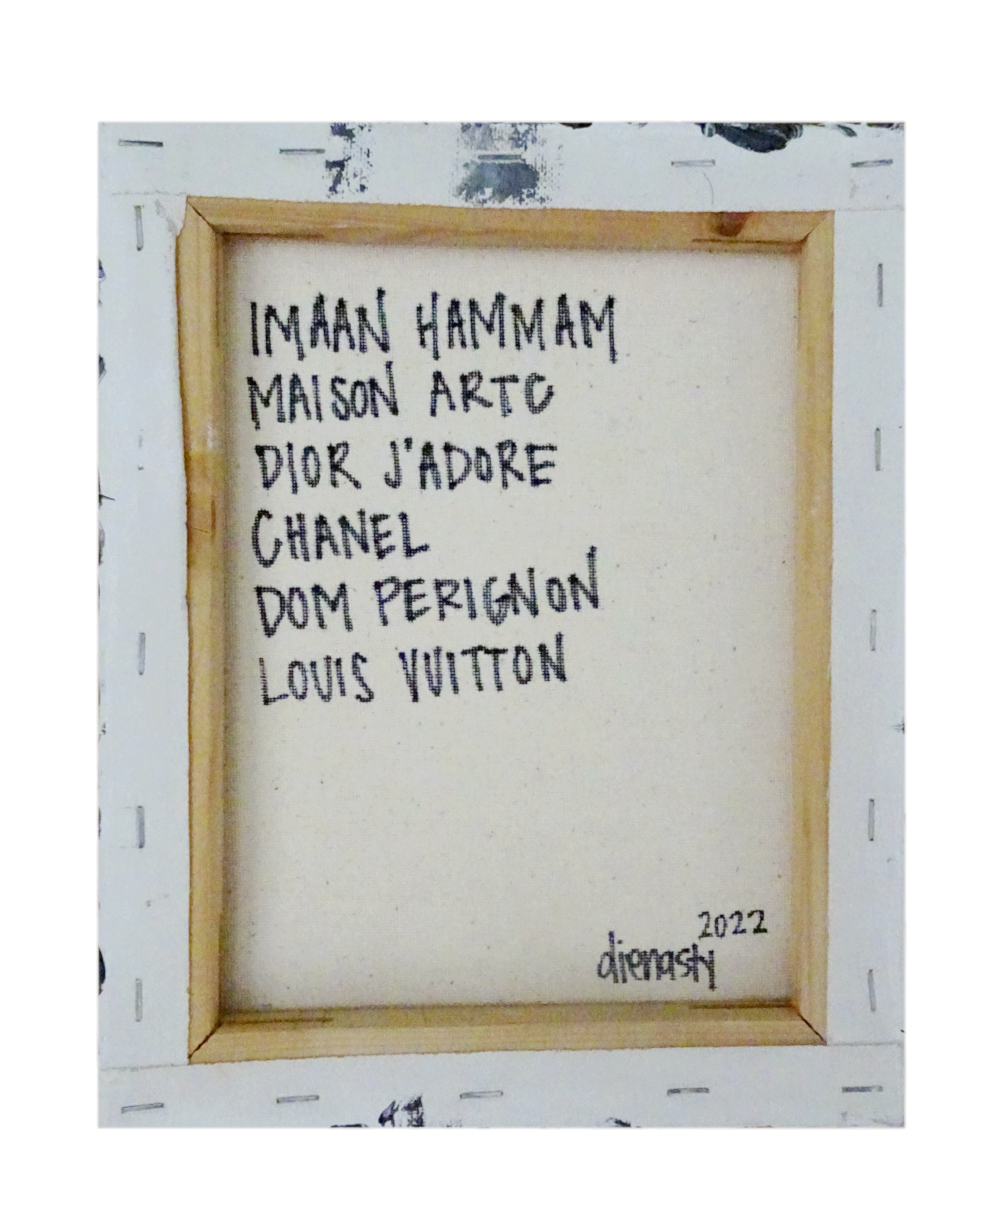 IMAAN HAMMAM
MAISON ARTC
DIOR J'ADORE
CHANEL
DOM PERIGNON
LOUIS VUITTON
2022
dienasty